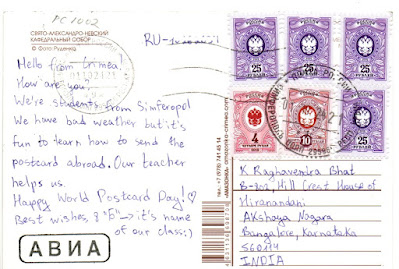 PC 1002
СВЯТО-АЛЕКСАНДРО-НЕВСКИЙ
КАФЕДРАЛЬНЫЙ СОБОР
© Фото Руденко
Hello from Crimea!
How are you
We're students from Simferopol
We have bad weather but it's
fun to learn how to send the
postcard abroad. Our teacher
helps us.
Happy World Postcard Day!♡
Best wishes, 8 "Б" → it's name
of our class:)
АВИА
25
25
25
25
4
10
K Raghavendra Bhat
B-302, Hill Crest House of
Hiranandani
Akshaya Nagara
Bangalore, Karnataka
560114
INDIA